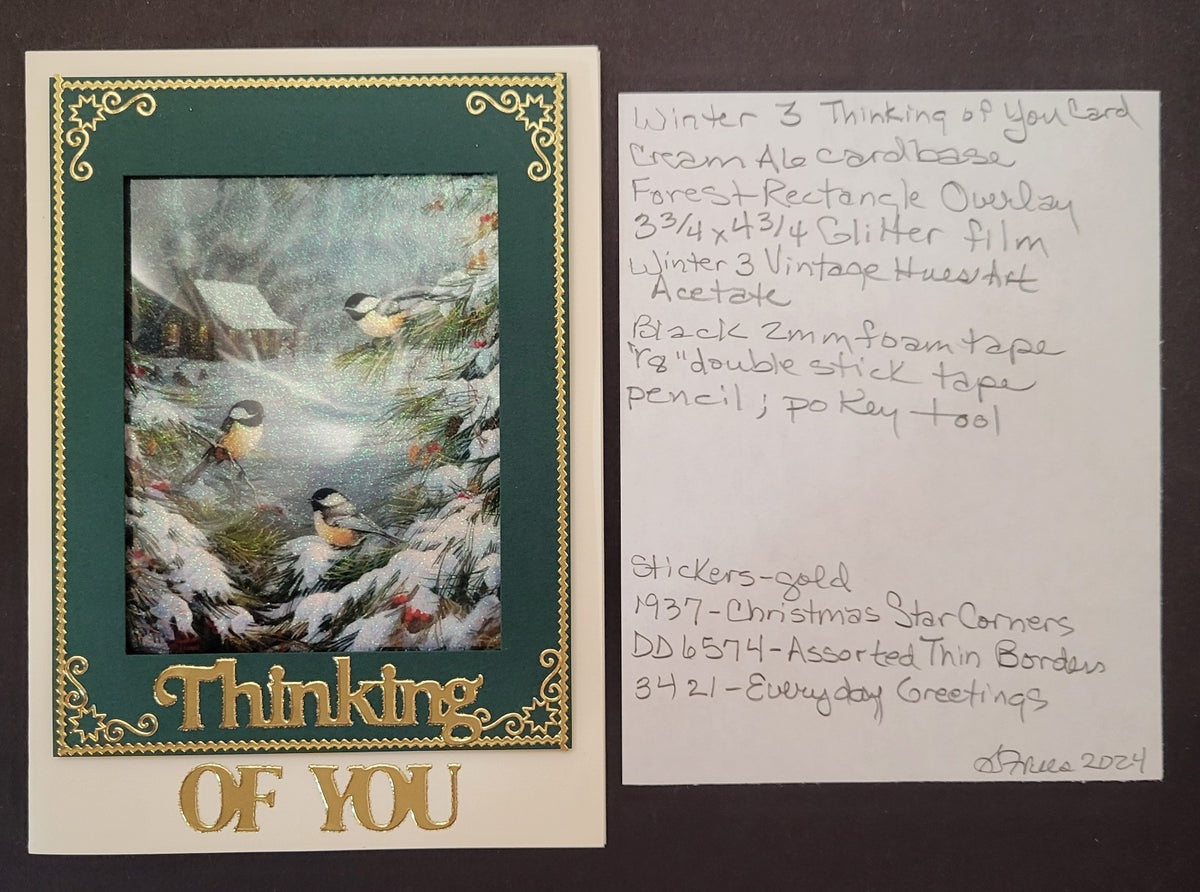 Thinking
OF YOU
Winter 3 Thinking of You Card
Cream A6 cardbase
Forest Rectangle Overlay
3 3/4 x 4 3/4 Glitter film
Winter 3 Vintage Hues Art
Acetate
Black 2mm foam tape
1/8" double stick tape
pencil; pokey tool
Stickers-gold
1937-Christmas Star Corners
DD6574-Assorted Thin Borders
3421-Everyday Greetings
2024